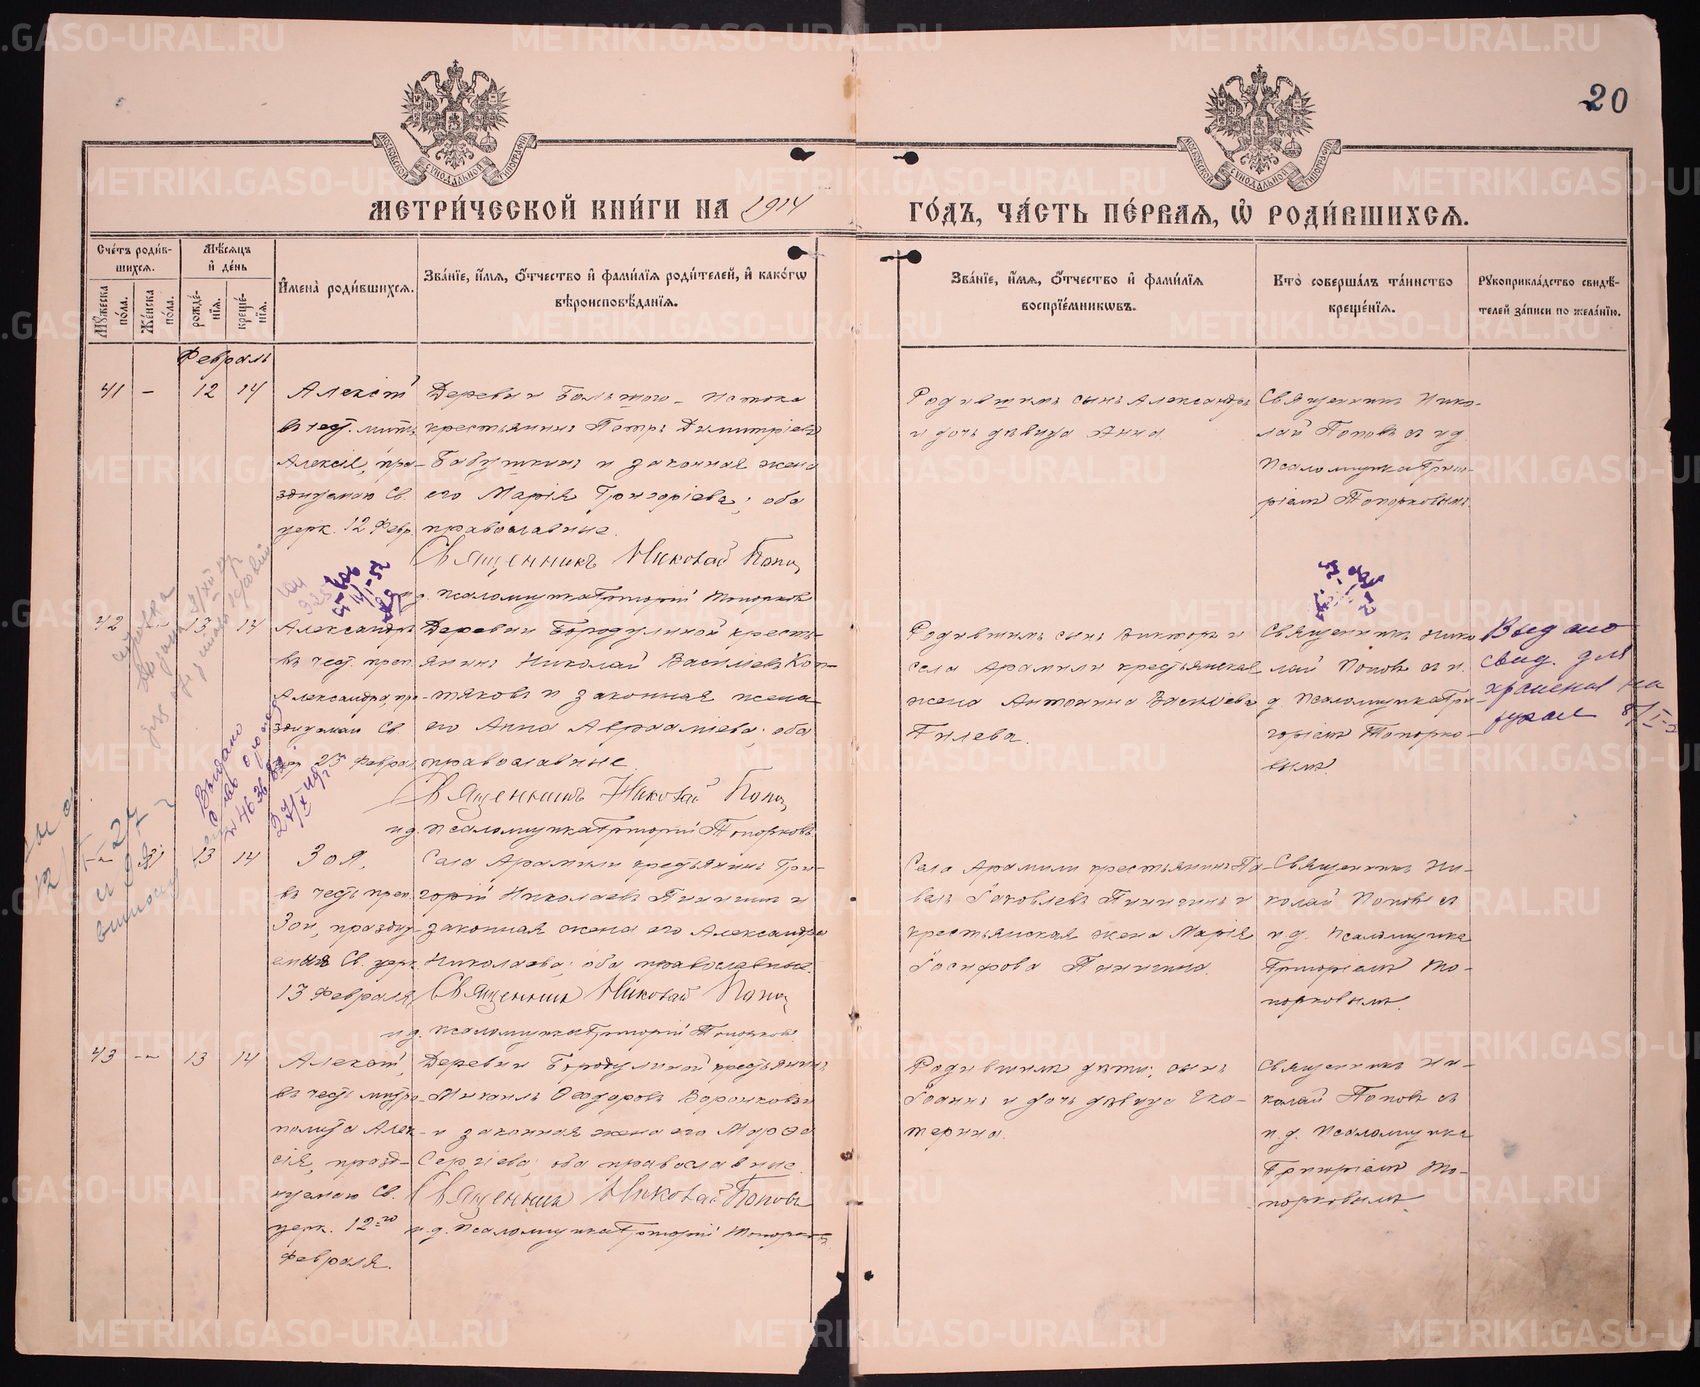 20
МЕТРИ́ЧЕСКОЙ КНИ́ГИ НА 1914 ГО́ДЪ, ЧА́СТЬ ПЕ́РВАѦ, Ѡ҆ РОДИ́ВШИХСѦ.
Сче́тъ роди́в-
шихсѧ.
Мꙋ́жеска по́ла.
Же́нска по́ла.
Мѣ́сѧцъ
и҆ де́нь
рожде́-
нїѧ.
креще́-
нїѧ.
И҆мена̀ роди́вшихсѧ.
Зва́нїе, и҆́мѧ, ѻ҆́тчество и҆ фами́лїѧ роди́телей, и҆ како́гѡ
вѣроисповѣ́данїѧ.
Зва́нїе, и҆́мѧ, ѻ҆́тчество и҆ фами́лїѧ
воспрїе́мниковъ.
Кто̀ соверша́лъ та́инство
креще́нїѧ.
Рꙋкоприкла́дство свидѣ́-
телей за́писи по жела́нїю.
Февраль
41 - 12 14
Алексій
въ чест. митр.
Алексія, пра-
зднуемаго Св.
церк. 12 Февр.
Деревни Большого-Истока
крестьянинъ Петръ Димитріевъ
Бабушкинъ и законная жена
его Марія Григоріева; оба
православные.
Священникъ Николай Попов
и.д. псаломщика Григорій Топорковъ
Родившимъ сынъ Александръ
и дочь дѣвица Анна
Священникъ Нико-
лай Поповъ съ и.д.
Псаломщика Григо-
ріемъ Топорковымъ.
42 - 13 14
Александръ
въ чест. преп.
Александра, пра-
зднуемаго Св.
23 Февра.
Деревни Бородулиной кресть-
янинъ Николай Васильевъ Коп-
тяковъ и законная жена
его Анна Авраамїева; оба
православные.
Священникъ Николай Попов
и.д. псаломщика Григорій Топорковъ
Родившимъ сынъ Викторъ и
села Арамили крестьянская
жена Антонина Васильева
Гилева.
Священникъ Нико-
лай Поповъ съ и.
д. Псаломщика Гри-
горіемъ Топорко-
вымъ.
Выдано
свид. для
хранения на
руках 8/I-52
Выдано
№ 463682
27/X-49г
13 14
Зоя,
въ честь преп.
Зои, праздну-
емыя Св. церк.
13 Февраля
Села Арамили крестьянинъ Гри-
горій Николаевъ Пинигинъ и
законная жена его Александра
Николаева; оба православные.
Священникъ Николай Попов
и.д. псаломщика Григорій Топорковъ
Села Арамили крестьянинъ Па-
велъ Іаковлевъ Пинигинъ и
крестьянская жена Марія
Іосифова Пинигина.
Священникъ Ни-
колай Поповъ съ
и.д. Псаломщика
Григоріемъ То-
порковымъ.
43 - 13 14
Алексій,
въ честь митро-
полита Алек-
сія, празд-
нуемаго Св.
церк. 12-го
Февраля.
Деревни Бородулиной крестьянинъ
Михаилъ Ѳеодоровъ Воронковъ
и законная жена его Марѳа
Сергіева; оба православные.
Священникъ Николай Поповъ
и.д. Псаломщика Григорій Топорковъ
Родившимъ дѣти: сынъ
Іоаннъ и дочь дѣвица Ека-
терина.
Священникъ Ни-
колай Поповъ съ
и.д. Псаломщика
Григоріемъ То-
порковымъ.
METRIKI.GASO-URAL.RU